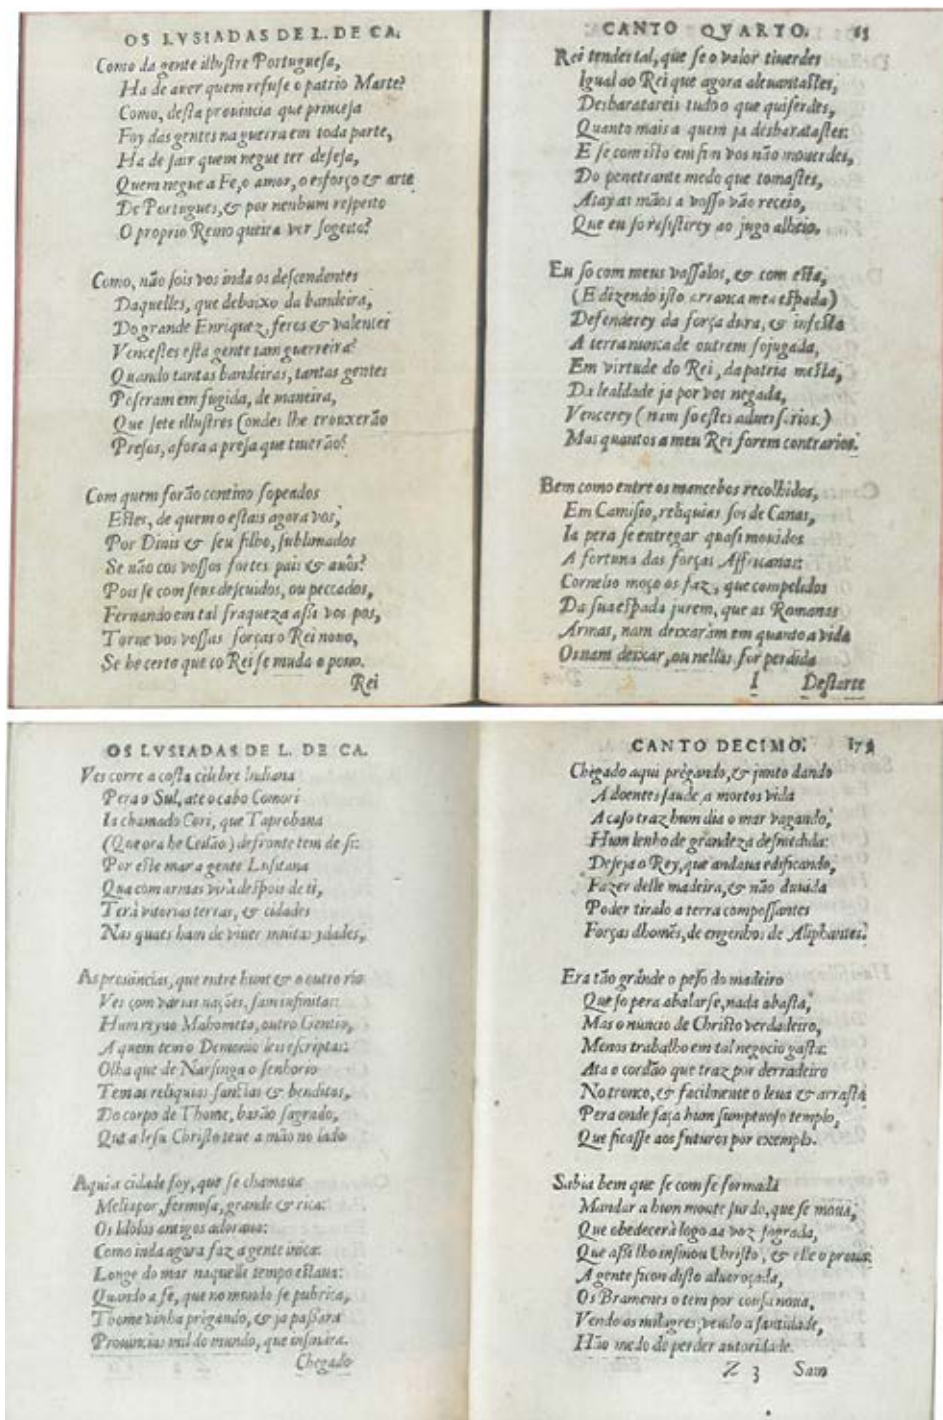 OS LVSIADAS DE L. DE CA.
Como da gente illustre Portuguesa,
Ha de auer quem refuse o patrio Marte?
Como, desta prouincia que princesa
Foy das gentes na guerra em toda parte,
Ha de sair quem negue ter defesa,
Quem negue a Fe, o amor, o esforço & arte
De Portugues, & por nenhum respeito
O proprio Reino queira ver sogeito?
Como, não sois vos inda os descendentes
Daquelles, que debaixo da bandeira,
Do grande Enriquez, feros & valentes
Vencestes esta gente tam guerreira?
Quando tantas bandeiras, tantas gentes
Poseram em fugida, de maneira,
Que sete illustres Condes lhe trouxerão
Presos, afora a presa que tiuerão?
Com quem forão contino sopeados
Estes, de quem o estais agora vos,
Por Dinis & seu filho, sublimados
Se não cos vossos fortes pais & auôs?
Pois se com seus descuidos, ou peccados,
Fernando em tal fraqueza assi vos pos,
Torne vos vossas forças o Rei nouo,
Se he certo que co Rei se muda o pouo.
Rei
CANTO QVARTO. 65
Rei tendes tal, que se o valor tiuerdes
Igual ao Rei que agora aleuantastes,
Desbaratareis tudo o que quiserdes,
Quanto mais a quem ja desbaratastes:
E se com isto em fim vos não mouerdes,
Do penetrante medo que tomastes,
Atay as mãos a vosso vão receio,
Que eu so resistirey ao jugo alheio.
Eu so com meus vassalos, & com esta,
(E dizendo isto arranca mea espada)
Defenderey da força dura, & infesta
A terra nunca de outrem sojugada,
Em virtude do Rei, da patria mesta,
Da lealdade ja por vos negada,
Vencerey (nam so estes aduersarios.)
Mas quantos a meu Rei forem contrarios.
Bem como entre os mancebos recolhidos,
Em Camisio, reliquias sos de Canas,
Ia pera se entregar quasi mouidos
A fortuna das forças Affricanas:
Cornelio moço os faz, que compelidos
Da sua espada jurem, que as Romanas
Armas, nam deixaram em quanto a vida
Os nam deixar, ou nellas for perdida
I Destarte
OS LVSIADAS DE L. DE CA.
Ves corre a costa celebre Indiana
Pera o Sul, ate o cabo Comori
Ia chamado Cori, que Taprobana
(Que ora he Ceilão) defronte tem de si:
Por este mar a gente Lusitana
Qua com armas virà despois de ti,
Terà vitorias terras, & cidades
Nas quaes ham de viuer muitas ydades,
As prouincias, que entre hum & o outro rio
Ves com varias nações, sam infinitas:
Hum reyno Mahometa, outro Gentio,
A quem tem o Demonio leis escriptas:
Olha que de Narsinga o senhorio
Tem as reliquias sanctas & benditas,
Do corpo de Thome, barão sagrado,
Que a Iesu Christo teue a mão no lado
Aqui a cidade foy, que se chamaua
Meliapor, fermosa, grande & rica:
Os Idolos antigos adoraua:
Como inda agora faz a gente inica:
Longe do mar naquelle tempo estaua:
Quando a fe, que no mundo se pubrica,
Thome vinha prègando, & ja passara
Prouincias mil do mundo, que insinára.
Chegado
CANTO DECIMO.
Chegado aqui prègando, & junto dando
A doentes saude, a mortos vida
A caso traz hum dia o mar vagando,
Hum lenho de grandeza desmedida:
Deseja o Rey, que andaua edificando,
Fazer delle madeira, & não duuida
Poder tiralo a terra compossantes
Forças dhomẽs, de engenhos de Aliphantes.
Era tão grande o peso do madeiro
Que so pera abalarse, nada abasta,
Mas o nuncio de Christo verdadeiro,
Menos trabalho em tal negocio gasta:
Ata o cordão que traz por derradeiro
No tronco, & facilmente o leua & arrasta
Pera onde faça hum sumptuoso templo,
Que ficasse aos futuros por exemplo.
Sabia bem que se com fe formada
Mandar a hum monte surdo, que se moua,
Que obedecerà logo aa voz sagrada,
Que assi lho insinou Christo, & elle o proua:
A gente ficou disto aluoroçada,
Os Bramenes o tem por cousa noua,
Vendo os milagres, vendo a santidade,
Hão medo de perder autoridade.
Z 3 Sam